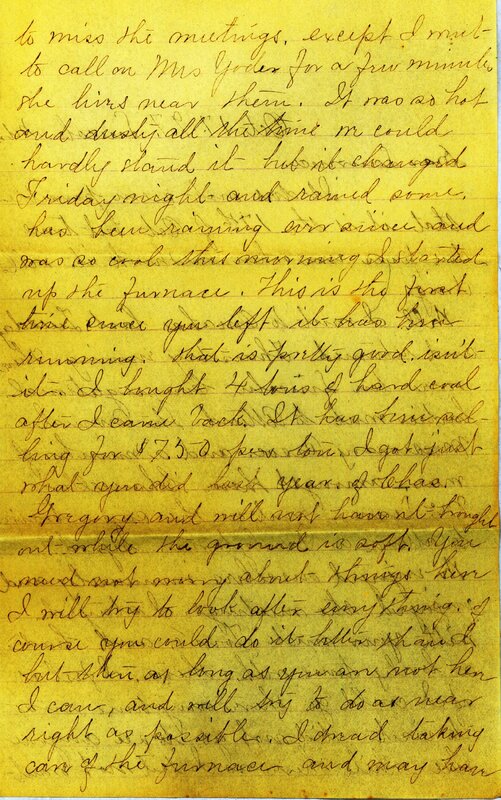 to miss the meetings, except I went
to call on Mrs Yoder for a few minutes
she lives near them. It was so hot
and dusty all the time we could
hardly stand it but it changed
Friday night and rained some,
has been raining ever since and
was so cool this morning I started
up the furnace. This is the first
time since you left it has been
running. that is pretty good, isn't
it. I bought 4 tons of hard coal
after I came back. It has been sel-
ling for $7.50 per ton. I got just
what you did last year of Chas.
Gregory and will not have it brought
out while the ground is soft. You
must not worry about things here
I will try to look after everything. of
course you could do it better than I
but then, as long as you are not here
I can, and will try to do as near
right as possible. I dread taking
care of the furnace, and may have